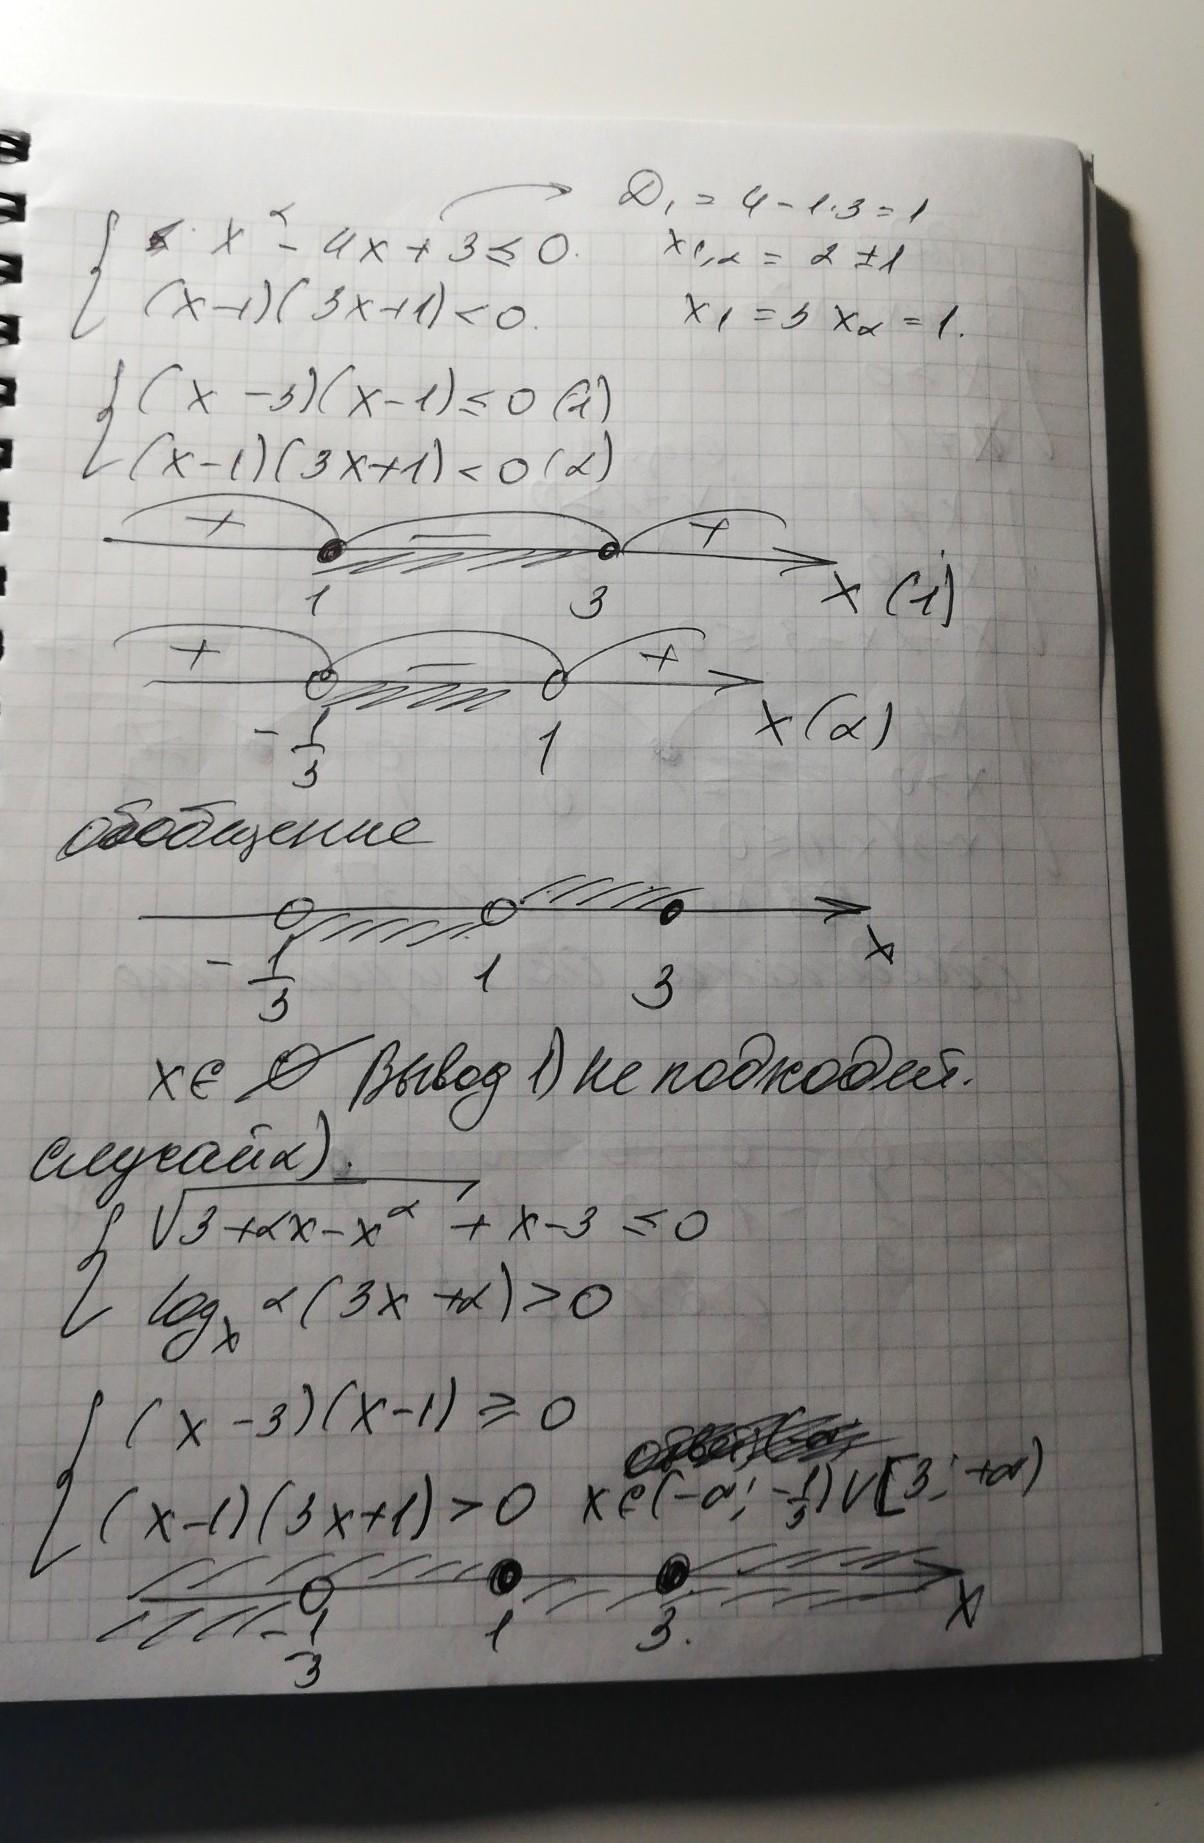 x² - 4x + 3 ≤ 0.
D₁ = 4 - 1·3 = 1
(x-1)(3x+1) < 0.
x₁,₂ = 2 ± 1
x₁ = 3 x₂ = 1.
(x - 3)(x-1) ≤ 0 (1)
(x-1)(3x+1) < 0 (2)
+ − +
1 3 x (1)
+ − +
-1/3 1 x (2)
обобщение
-1/3 1 3 x
x ∈ ∅ Вывод 1) не подходит.
случай 2).
√(3+2x-x²) + x-3 ≤ 0
logₓ 2(3x+2) > 0
(x-3)(x-1) ≥ 0
(x-1)(3x+1) > 0 x ∈ (-∞; -1/3) ∪ [3; +∞)
-1/3 1 3. x